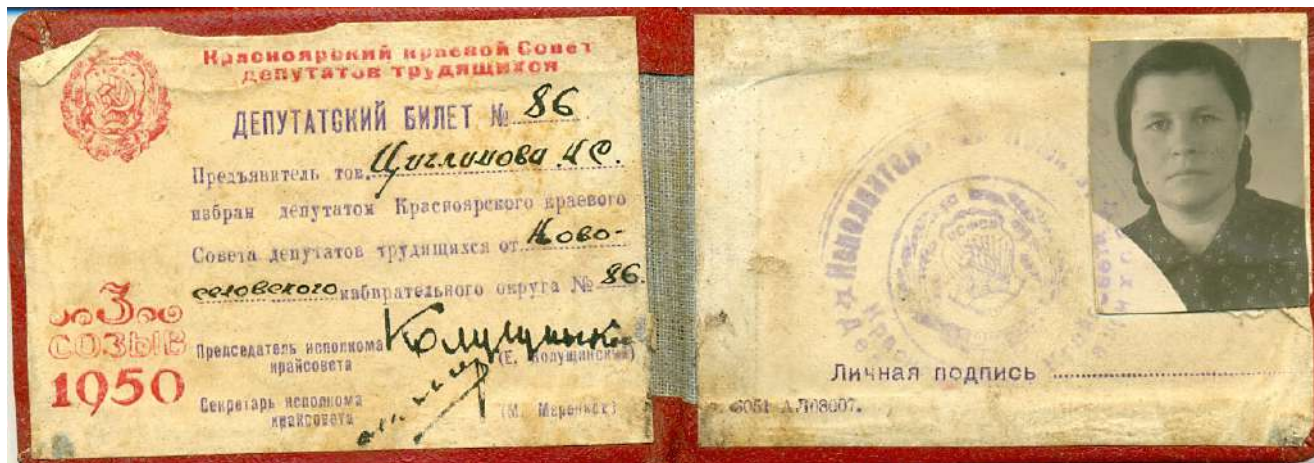 Красноярский краевой Совет
депутатов трудящихся
ДЕПУТАТСКИЙ БИЛЕТ № 86
Предъявитель тов.
избран депутатом Красноярского краевого
Совета депутатов трудящихся от Ново-
селовского избирательного округа № 86.
3
СОЗЫВ
1950
Председатель исполкома
крайсовета
(Е. Колущинский)
Секретарь исполкома
крайсовета
(М.
Исполнительн
Личная подпись